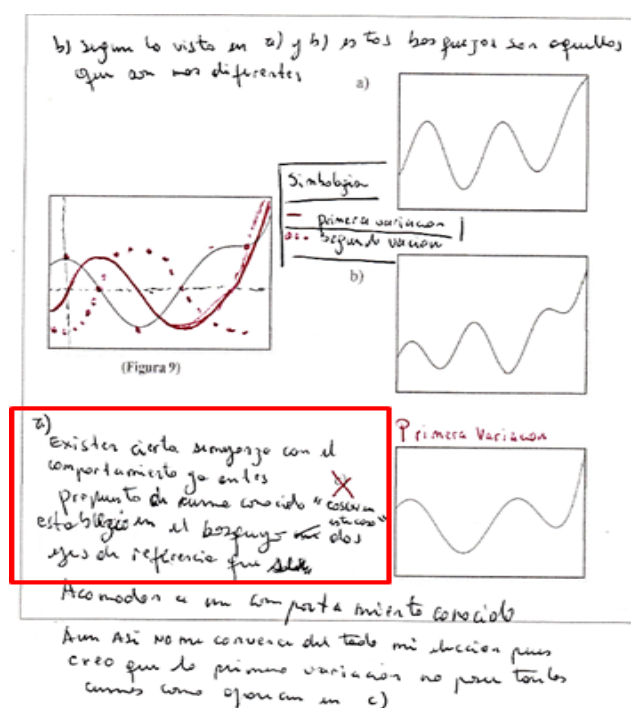 b) segun lo visto en a) y b) estos bosquejos son aquellos
que son mas diferentes
a)
Simbologia
primera variacion
segunda vacion
b)
(Figura 9)
a)
Existen cierta semejanza con el
comportamiento ya antes
propuesto de curva conocida "coseno en
esta caso"
establezco en el bosquejo dos
ejes de referencia que
Primera Variacion
Acomodan a un comportamiento conocido
Aun Asi No me convence del todo mi eleccion pues
creo que la primera variacion no posee tantas
curvas como aparecen en c)